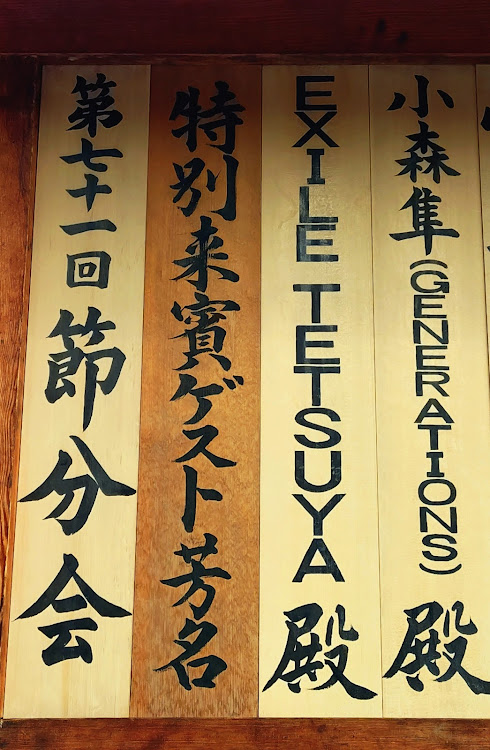 第七十一回節分会
特別来賓ゲスト芳名
EXILE TETSUYA 殿
小森隼(GENERATIONS)殿